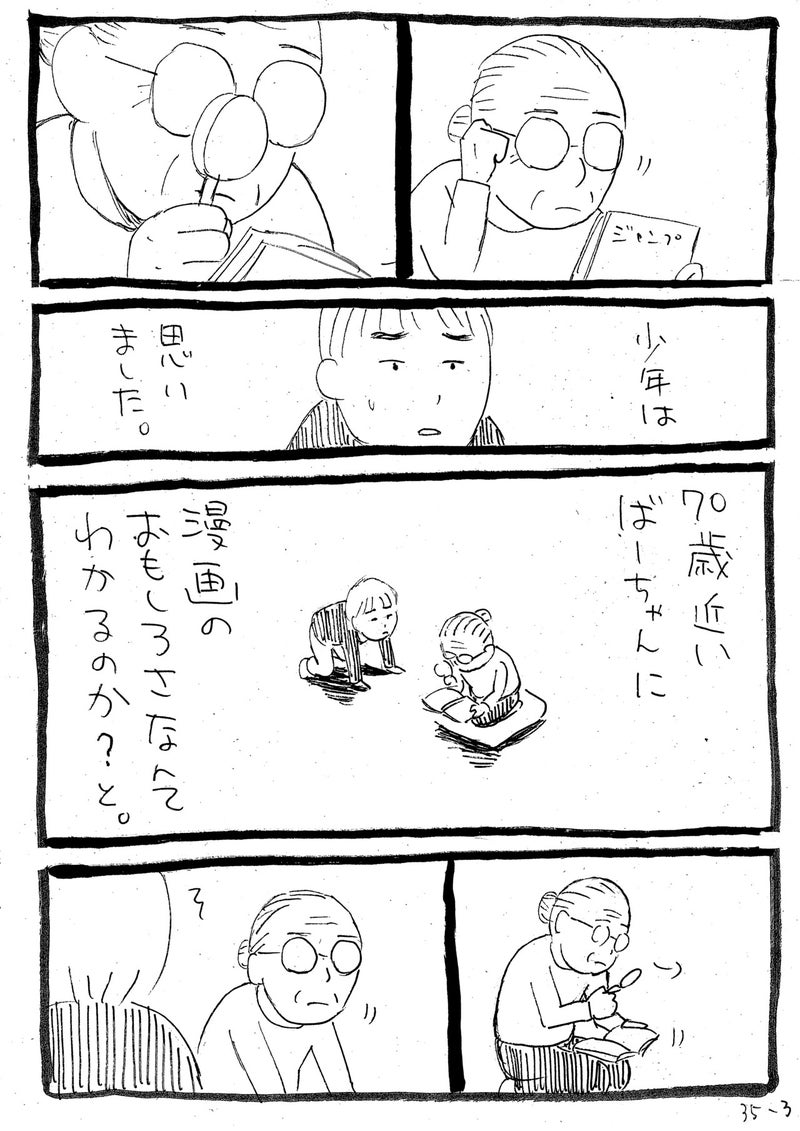 ジャンプ
少年は
思い
ました。
70歳近い
ばーちゃんに
漫画の
おもしろさなんて
わかるのか?と。
35-3